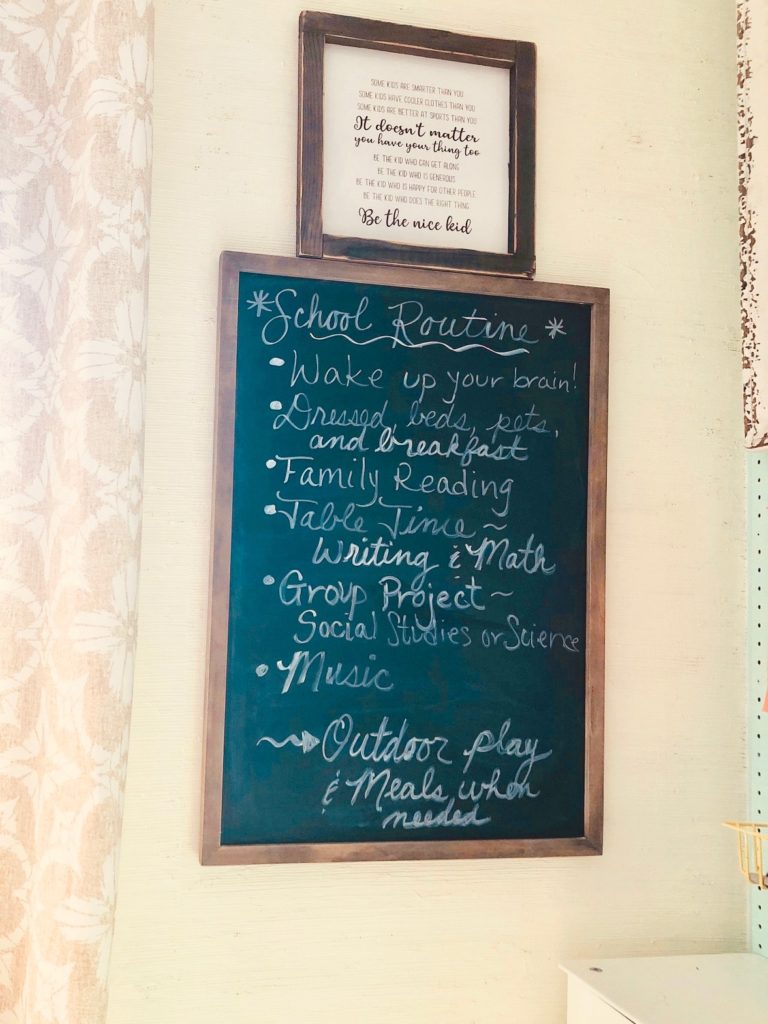 SOME KIDS ARE SMARTER THAN YOU
SOME KIDS HAVE COOLER CLOTHES THAN YOU
SOME KIDS ARE BETTER AT SPORTS THAN YOU
It doesn't matter
you have your thing too
BE THE KID WHO CAN GET ALONG
BE THE KID WHO IS GENEROUS
BE THE KID WHO IS HAPPY FOR OTHER PEOPLE
BE THE KID WHO DOES THE RIGHT THING
Be the nice kid
*School Routine*
• Wake up your brain!
• Dressed, beds, pets,
and breakfast
• Family Reading
• Table Time ~
Writing & Math
• Group Project ~
Social Studies or Science
• Music
→ Outdoor play
& Meals when
needed